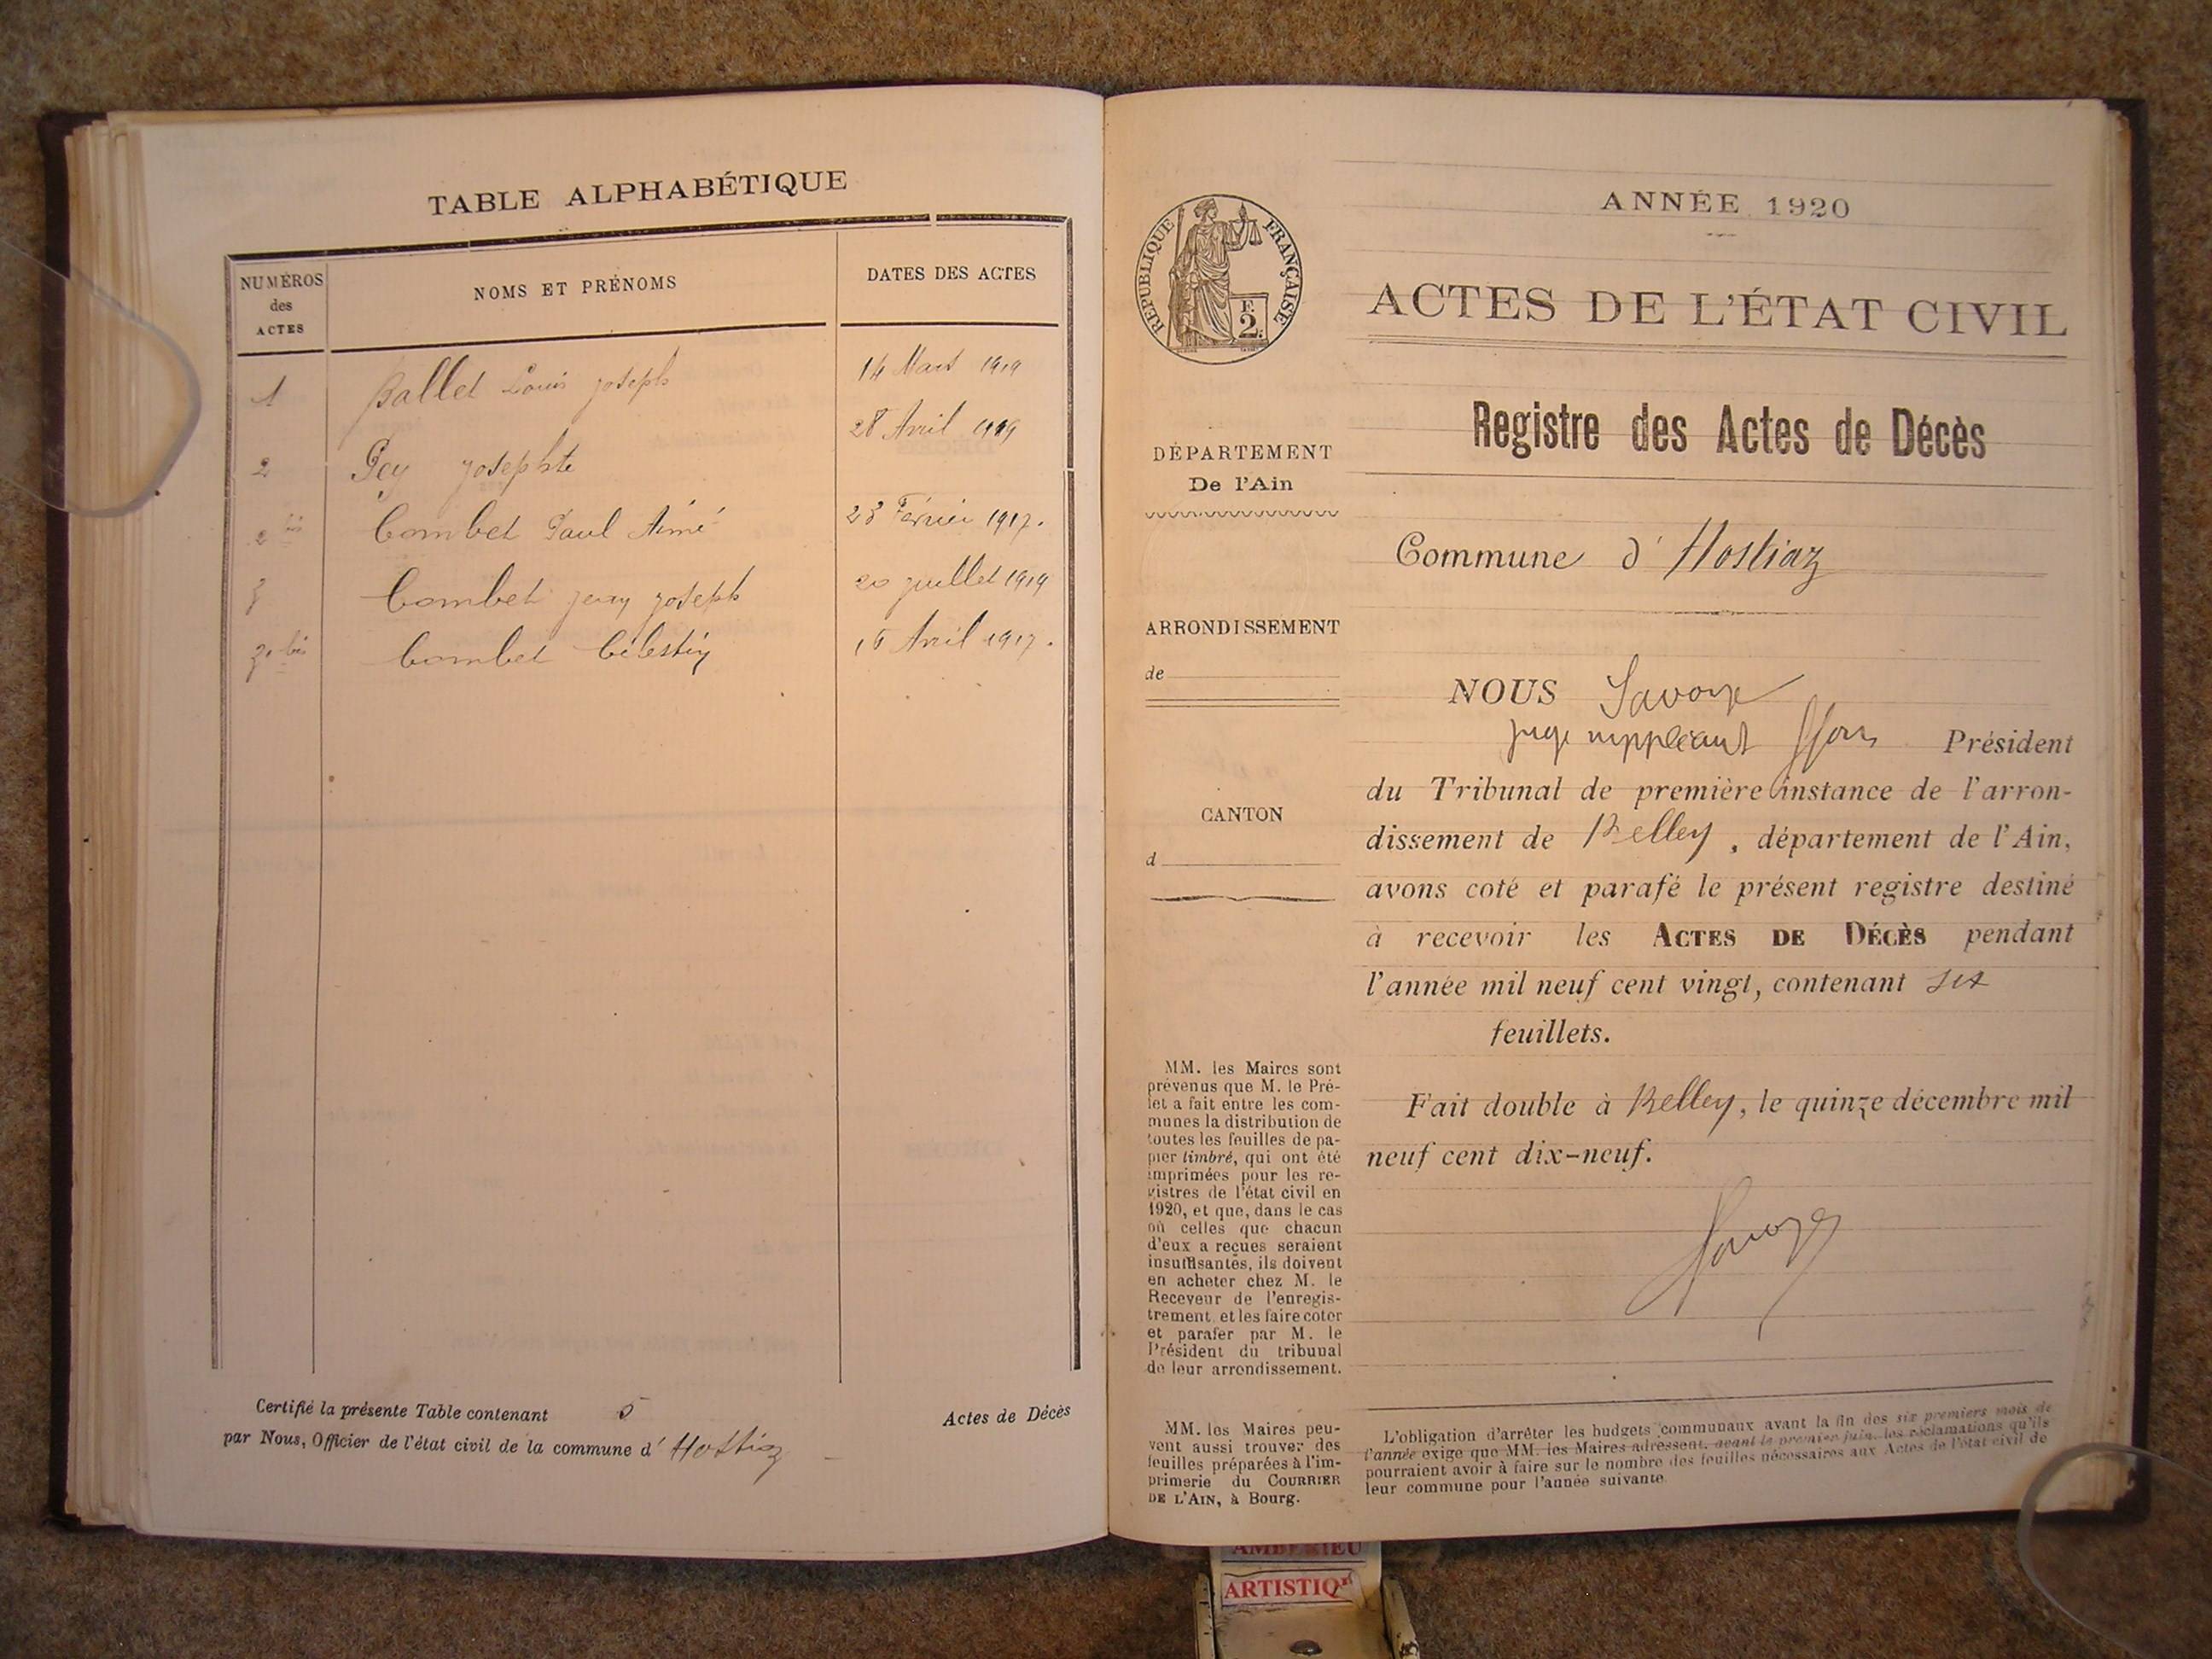 TABLE ALPHABÉTIQUE
NUMÉROS
des
ACTES
NOMS ET PRÉNOMS
DATES DES ACTES
1 Ballet Louis Joseph 14 Mars 1919
2 Pey Josephte 28 Avril 1919
2 bis Combet Paul Aimé 23 Février 1917.
3 Combet Jean Joseph 20 juillet 1919
3 bis Combet Célestin 16 Avril 1917.
Certifié la présente Table contenant 5 Actes de Décès
par Nous, Officier de l'état civil de la commune d' Hostiaz
RÉPUBLIQUE FRANÇAISE
F.
2.
DÉPARTEMENT
De l'Ain
ARRONDISSEMENT
de
CANTON
d
MM. les Maires sont
prévenus que M. le Pré-
fet a fait entre les com-
munes la distribution de
toutes les feuilles de pa-
pier timbré, qui ont été
imprimées pour les re-
gistres de l'état civil en
1920, et que, dans le cas
où celles que chacun
d'eux a reçues seraient
insuffisantes, ils doivent
en acheter chez M. le
Receveur de l'enregis-
trement, et les faire coter
et parafer par M. le
Président du tribunal
de leur arrondissement.
MM. les Maires peu-
vent aussi trouver des
feuilles préparées à l'im-
primerie du COURRIER
DE L'AIN, à Bourg.
ANNÉE 1920
ACTES DE L'ÉTAT CIVIL
Registre des Actes de Décès
Commune d' Hostiaz
NOUS Savoye
juge suppléant Président
du Tribunal de première instance de l'arron-
dissement de Belley, département de l'Ain,
avons coté et parafé le présent registre destiné
à recevoir les ACTES DE DÉCÈS pendant
l'année mil neuf cent vingt, contenant six
feuillets.
Fait double à Belley, le quinze décembre mil
neuf cent dix-neuf.
Savoye
L'obligation d'arrêter les budgets communaux avant la fin des six premiers mois de
l'année exige que MM. les Maires adressent, avant le premier juin, les réclamations qu'ils
pourraient avoir à faire sur le nombre des feuilles nécessaires aux Actes de l'état civil de
leur commune pour l'année suivante
AMBÉRIEU
ARTISTIQ